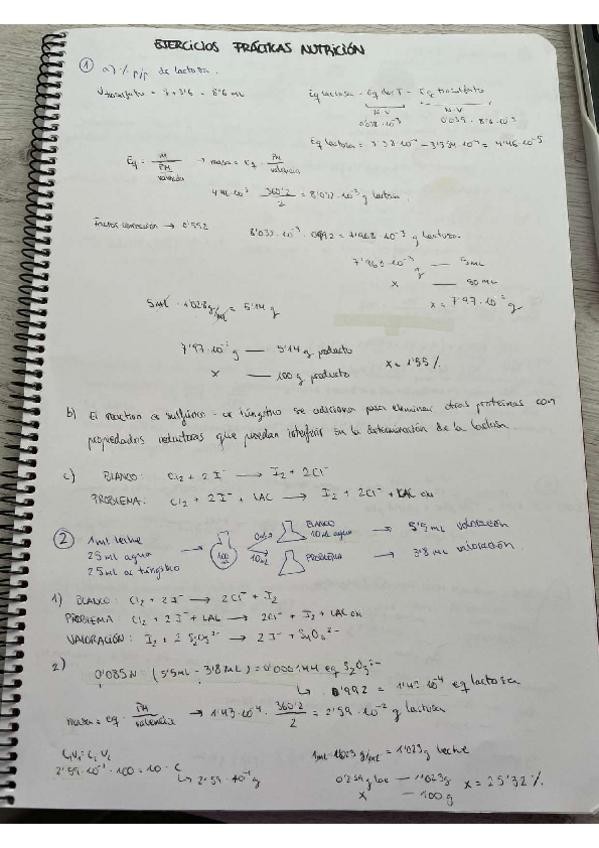 EJERCICIOS PRÁCTICAS NUTRICIÓN
① a) % p/p de lactosa.
V tiosulfato = 8 + 3'6 = 8'6 mL
Eq lactosa = Eq de T - Eq tiosulfato
N·V
N·V
0'039 · 8'6·10⁻³
Eq = m / (PM / valencia) → masa = Eq · PM / valencia
360'2 / 2 = 8'032·10⁻³ g lactosa
Factor corrección → 0'992
8'032·10⁻³ · 0'992 = 7'968·10⁻³ g lactosa.
7'968·10⁻³ g — 5mL
x — 50 mL
x = 7'97·10⁻² g
5mL · 1'028 g/mL = 5'14 g
7'97·10⁻² g — 5'14 g producto
x — 100 g producto
x = 1'55 %
b) El reactivo ac sulfúrico - ac túngstico se adiciona para eliminar otras proteínas con
propiedades reductoras que puedan interferir en la determinación de la lactosa
c) BLANCO: Cl₂ + 2 I⁻ → I₂ + 2Cl⁻
PROBLEMA: Cl₂ + 2 I⁻ + LAC → I₂ + 2Cl⁻ + LAC ox
② 1ml leche
25ml agua
25ml ac túngstico
100 mL
10mL
BLANCO
10mL agua
→ 5'5 mL valoración
10mL
PROBLEMA
→ 3'8 mL valoración.
1) BLANCO: Cl₂ + 2 I⁻ → 2Cl⁻ + I₂
PROBLEMA Cl₂ + 2 I⁻ + LAC → 2Cl⁻ + I₂ + LAC ox
VALORACIÓN: I₂ + 2 S₂O₃²⁻ → 2 I⁻ + S₄O₆²⁻
2) 0'085N (5'5mL - 3'8mL) = 0'000144 eq S₂O₃²⁻
↳ 0'992 = 1'43·10⁻⁴ eq lactosa
masa = eq · PM / valencia → 1'43·10⁻⁴ · 360'2 / 2 = 2'59·10⁻² g lactosa
C₁V₁ = C₂V₂
2'59·10⁻² · 100 = 10 · C
↳ 2'59·10⁻¹ g
1mL · 1'023 g/mL = 1'023g leche
0'259g lac — 1'023g
x — 100g
x = 25'32 %